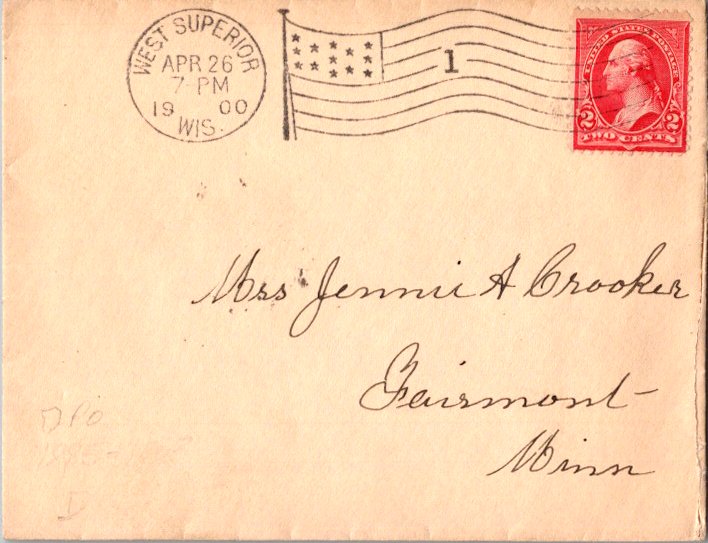 WEST SUPERIOR
APR 26
7-PM
19 00
WIS.
1
UNITED STATES POSTAGE
2 2
TWO CENTS
Mrs Jennie A Crooker
Fairmont
Minn
DPO